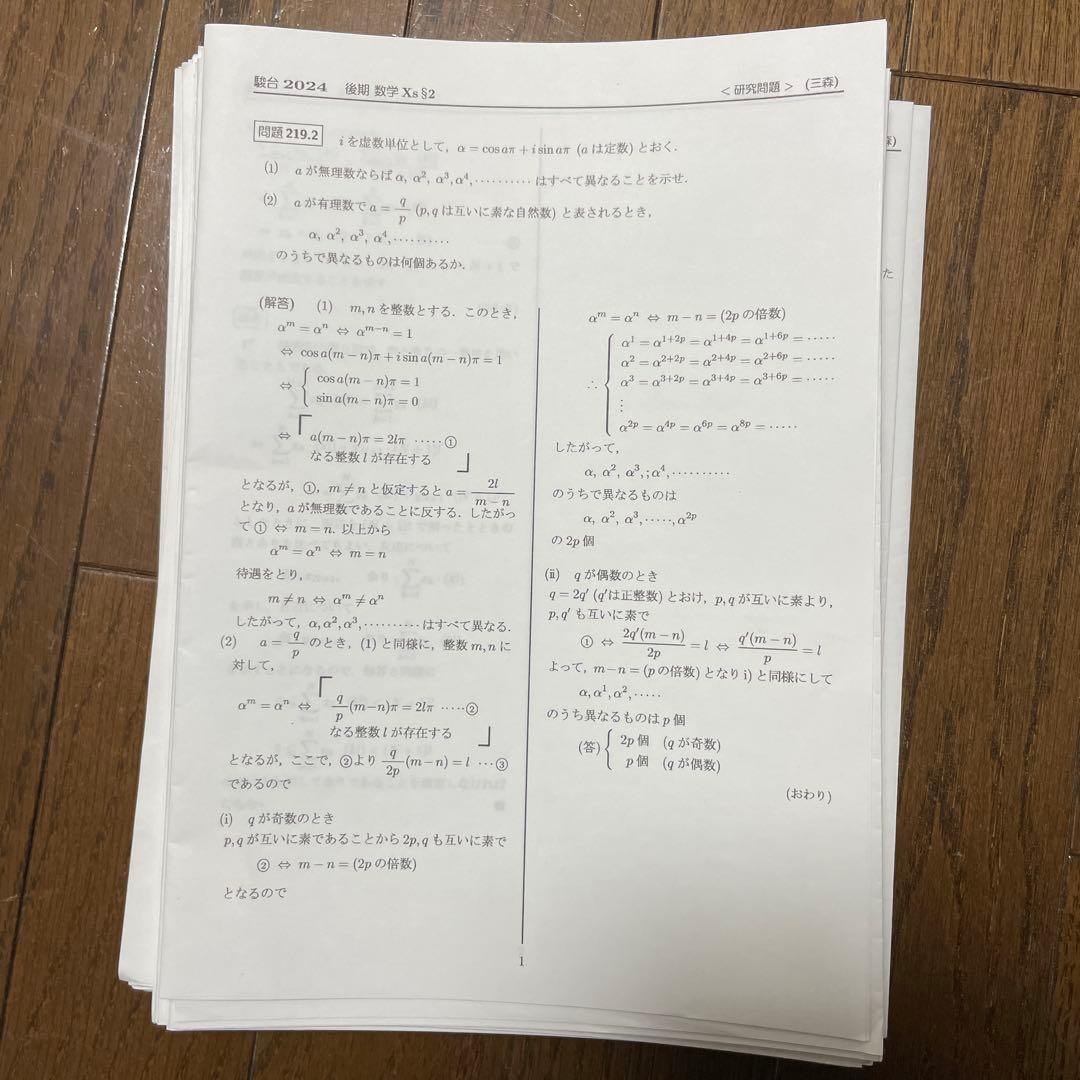 駿台 2024 後期 数学 Xs §2
< 研究問題 > (三森)
問題 219.2 i を虚数単位として, α = cos aπ + i sin aπ (a は定数) とおく.
(1) a が無理数ならば α, α², α³, α⁴, ·········· はすべて異なることを示せ.
(2) a が有理数で a = q/p (p, q は互いに素な自然数) と表されるとき,
α, α², α³, α⁴, ··········
のうちで異なるものは何個あるか.
(解答) (1) m, n を整数とする. このとき,
αᵐ = αⁿ ⇔ αᵐ⁻ⁿ = 1
⇔ cos a(m − n)π + i sin a(m − n)π = 1
⇔ { cos a(m − n)π = 1
sin a(m − n)π = 0
⇔ 「 a(m − n)π = 2lπ ····· ①
なる整数 l が存在する 」
となるが, ①, m ≠ n と仮定すると a = 2l/(m − n)
となり, a が無理数であることに反する. したがっ
て ① ⇔ m = n. 以上から
αᵐ = αⁿ ⇔ m = n
待遇をとり,
m ≠ n ⇔ αᵐ ≠ αⁿ
したがって, α, α², α³, ·········· はすべて異なる.
(2) a = q/p のとき, (1) と同様に, 整数 m, n に
対して,
αᵐ = αⁿ ⇔ 「 q/p (m−n)π = 2lπ ····· ②
なる整数 l が存在する 」
となるが, ここで, ②より q/2p (m − n) = l ··· ③
であるので
(i) q が奇数のとき
p, q が互いに素であることから 2p, q も互いに素で
② ⇔ m − n = (2p の倍数)
となるので
αᵐ = αⁿ ⇔ m − n = (2p の倍数)
∴ { α¹ = α¹⁺²ᵖ = α¹⁺⁴ᵖ = α¹⁺⁶ᵖ = ·····
α² = α²⁺²ᵖ = α²⁺⁴ᵖ = α²⁺⁶ᵖ = ·····
α³ = α³⁺²ᵖ = α³⁺⁴ᵖ = α³⁺⁶ᵖ = ·····
⋮
α²ᵖ = α⁴ᵖ = α⁶ᵖ = α⁸ᵖ = ·····
したがって,
α, α², α³, ; α⁴, ··········
のうちで異なるものは
α, α², α³, ·····, α²ᵖ
の 2p 個
(ii) q が偶数のとき
q = 2q′ (q′は正整数) とおけ, p, q が互いに素より,
p, q′ も互いに素で
① ⇔ 2q′(m − n)/2p = l ⇔ q′(m − n)/p = l
よって, m − n = (p の倍数) となり i) と同様にして
α, α¹, α², ·····
のうち異なるものは p 個
(答) { 2p 個 (q が奇数)
p 個 (q が偶数)
(おわり)
1
た